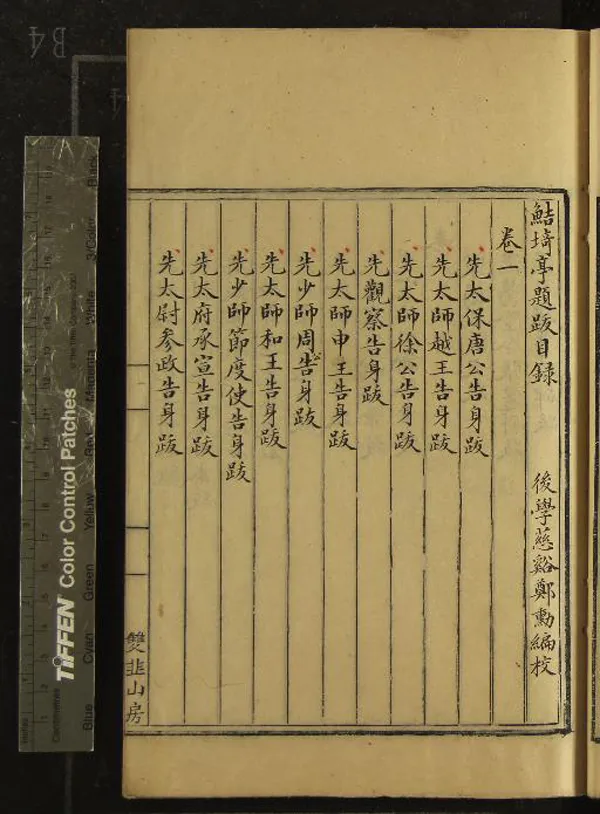 鮚埼亭題跋目録 後學慈谿鄭勳編校
卷一
先太保唐公告身跋
先太師越王告身跋
先太師徐公告身跋
先觀察告身跋
先太師申王告身跋
先少師周告身跋
公
先太師和王告身跋
先少師節度使告身跋
先太府承宣告身跋
先太尉参政告身跋
雙韭山房
TIFFEN Color Control Patches
Blue Cyan Green Yellow Red Magenta White 3/Color Black
Centimetres
Inches
B4